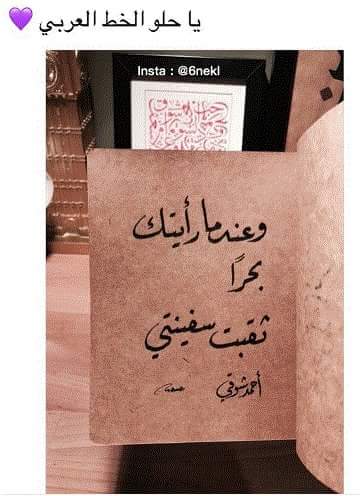 يا حلو الخط العربي 💜
Insta : @6nekl
وعندما رأيتك
بحرًا
ثقبت سفينتي
أحمد شوقي